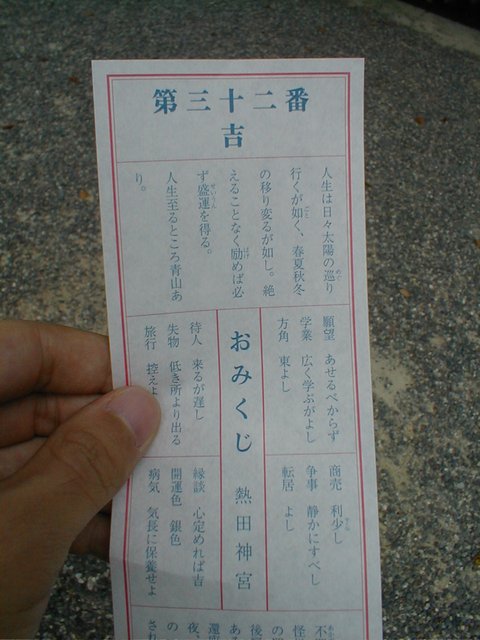 第三十二番
吉
人生は日々太陽の巡り
行くが如く、春夏秋冬
の移り変るが如し。絶
えることなく励めば必
ず盛運を得る。
人生至るところ青山あ
り。
願望 あせるべからず
学業 広く学ぶがよし
方角 東よし
おみくじ 熱田神宮
待人 来るが遅し
失物 低き所より出る
旅行 控えよ
商売 利少し
争事 静かにすべし
転居 よし
縁談 心定めれば吉
開運色 銀色
病気 気長に保養せよ